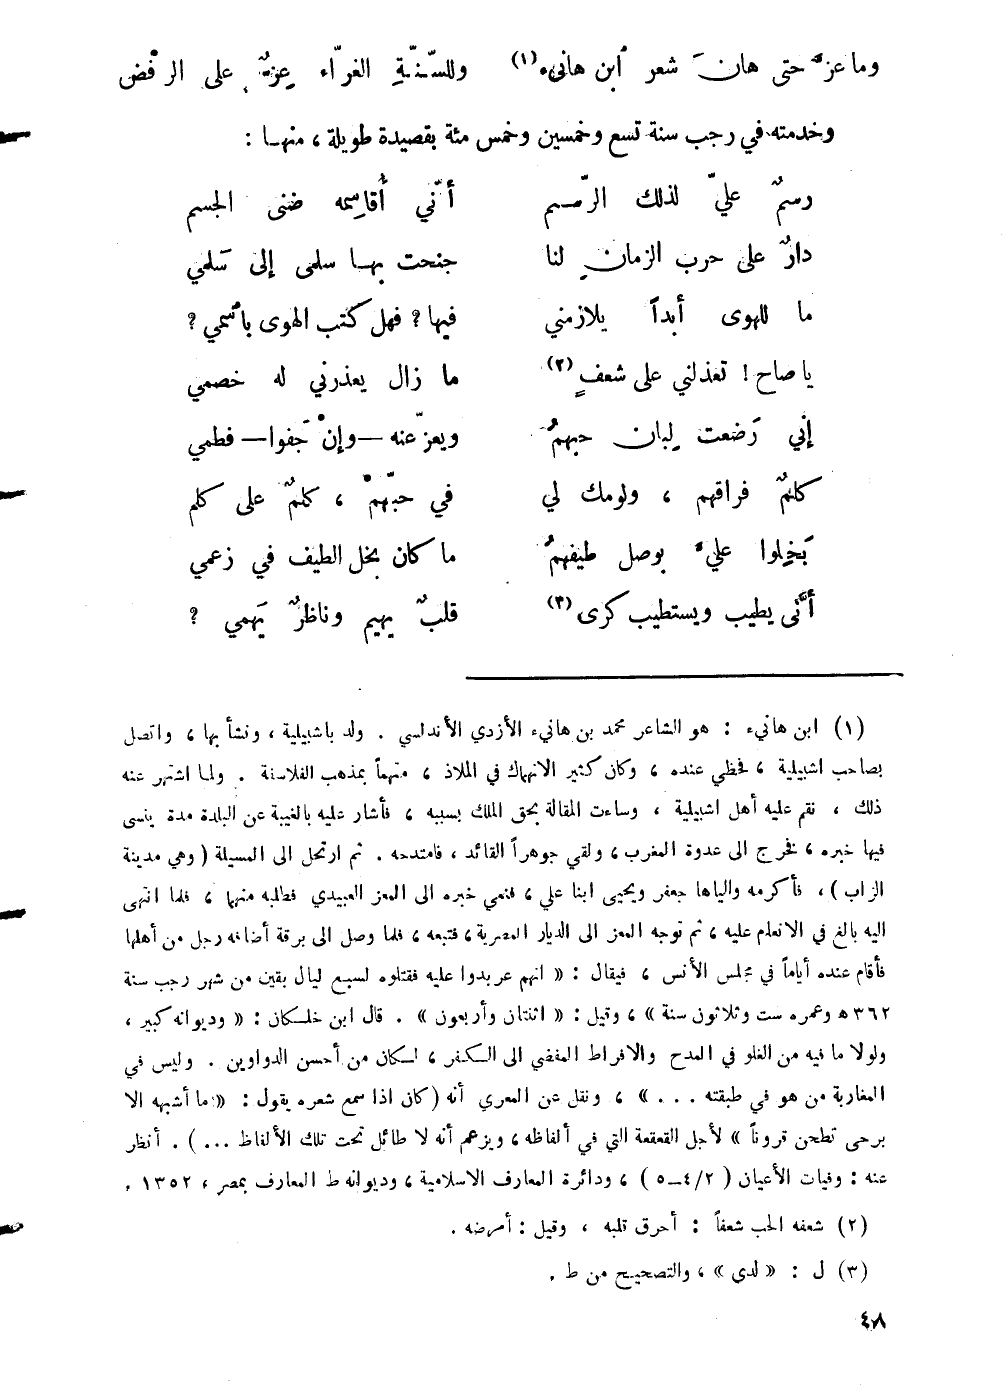 وما عزّ حتى هانَ شعر ٱبن هانىء (١) وللسّنّةِ الغرّاء عِزٌّ على الرفض
وخدمته في رجب سنة تسع وخمسين وخمس مئة بقصيدة طويلة ، منها :
رسمٌ عليّ لذلك الرّسم أنّي أُقاسِمه ضنى الجسم
دارٌ على حرب الزمانِ لنا جنحت بها سلمى إلى سَلمي
ما للهوى أبداً يلازمني فيها ? فهل كُتب الهوى بٱسمي ?
يا صاح ! تعذلني على شعفٍ (٢) ما زال يعذرني له خصمي
إني رَضعت لِبان حبهمُ ويعزّ عنه —وإنْ جَفوا— فطمي
كلمٌ فراقهم ، ولومك لي في حبّهمْ ، كلمٌ على كلم
بَخِلوا عليّ بوصل طيفهمُ ما كان بخل الطيف في زعمي
أنَّى يطيب ويستطيب كرى (٣) قلبٌ يهيم وناظرٌ يَهمي ?
(١) ابن هانيء : هو الشاعر محمد بن هانيء الأزدي الأندلسي . ولد باشبيلية ، ونشأ بها ، واتصل
بصاحب اشبيلية ، فحظي عنده ، وكان كثير الانهماك في الملاذ ، متهماً بمذهب الفلاسفة . ولما اشتهر عنه
ذلك ، نقم عليه أهل اشبيلية ، وساءت المقالة بحق الملك بسببه ، فأشار عليه بالغيبة عن البلدة مدة ينسى
فيها خبره ، فخرج الى عدوة المغرب ، ولقي جوهراً القائد ، فامتدحه . ثم ارتحل الى المسيلة ( وهي مدينة
الزاب ) ، فأكرمه والياها جعفر ويحيى ابنا علي ، فنمي خبره الى المعز العبيدي فطلبه منهما ، فلما انتهى
اليه بالغ في الانعام عليه ، ثم توجه المعز الى الديار المصرية ، فتبعه ، فلما وصل الى برقة أضافه رجل من أهلها
فأقام عنده أياماً في مجلس الأنس ، فيقال : « انهم عربدوا عليه فقتلوه لسبع ليال بقين من شهر رجب سنة
٣٦٢ ه وعمره ست وثلاثون سنة » ، وقيل : « اثنتان وأربعون » . قال ابن خلكان : « وديوانه كبير ،
ولولا ما فيه من الغلو في المدح والافراط المفضي الى الكفر ، لكان من أحسن الدواوين . وليس في
المغاربة من هو في طبقته . . . » ، ونقل عن المعري أنه ( كان اذا سمع شعره يقول : « ما أشبهه الا
برحى تطحن قروناً » لأجل القعقعة التي في ألفاظه ، ويزعم أنه لا طائل تحت تلك الألفاظ ... ) . أنظر
عنه : وفيات الأعيان ( ٢/٤ـ٥ ) ، ودائرة المعارف الاسلامية ، وديوانه ط المعارف بمصر ، ١٣٥٢ .
(٢) شعفه الحب شعفاً : أحرق قلبه ، وقيل : أمرضه .
(٣) ل : « لدي » ، والتصحيح من ط .
٤٠٨